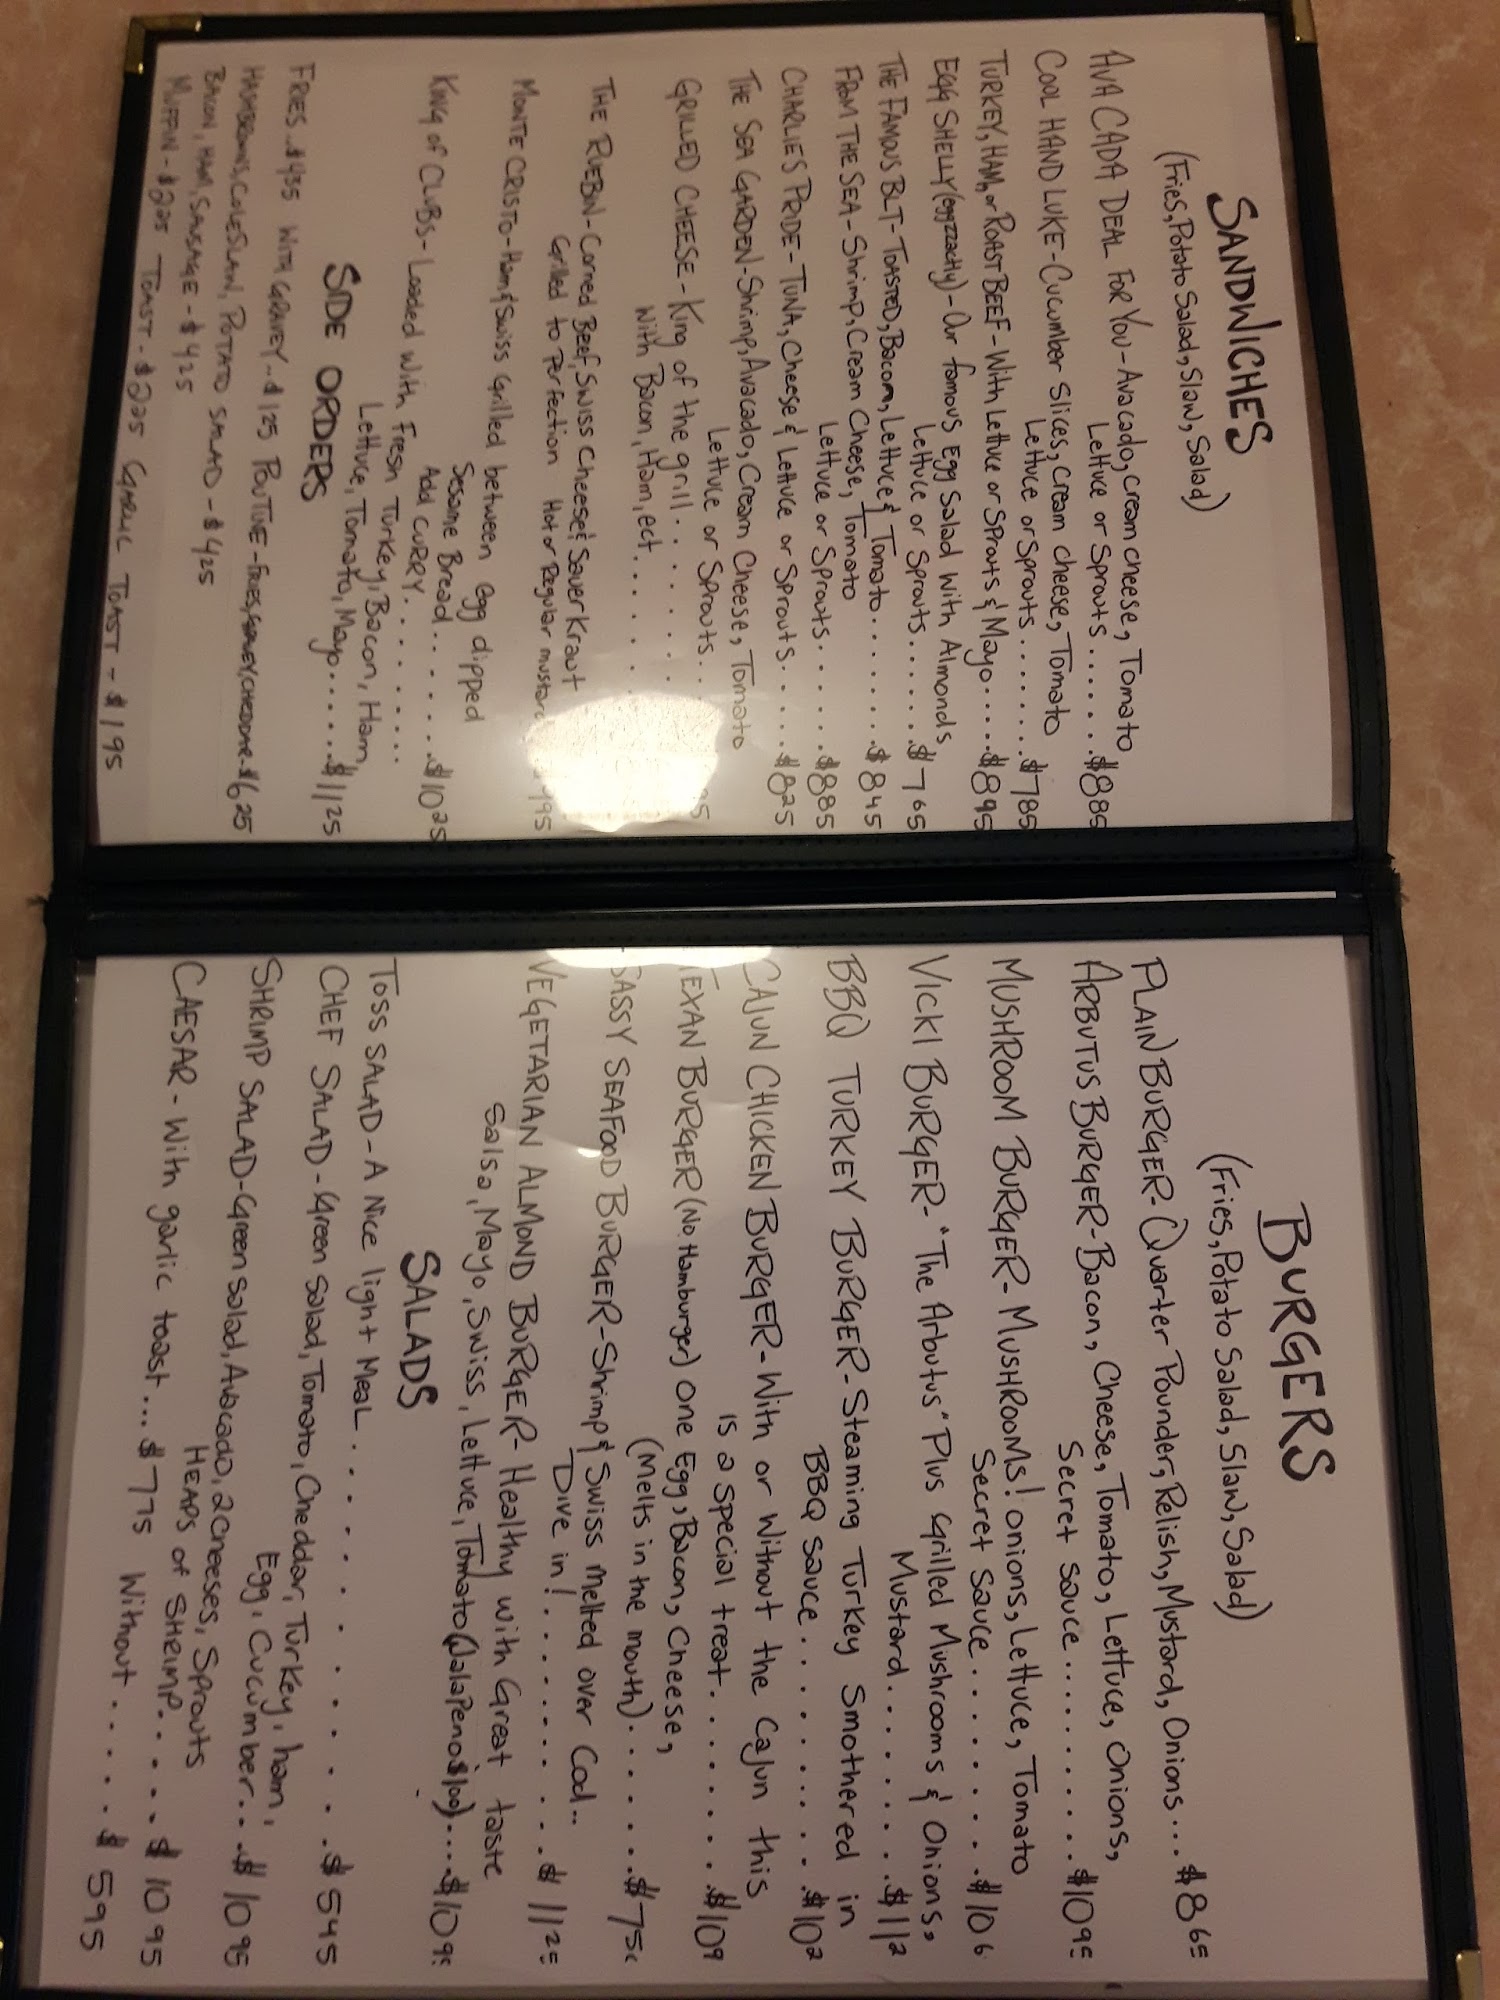 SANDWICHES
(Fries, Potato Salad, Slaw, Salad)
AVA CADA DEAL FOR YOU - Avacado, cream cheese, Tomato
Lettuce or Sprouts......$885
COOL HAND LUKE - Cucumber Slices, Cream cheese, Tomato
Lettuce or Sprouts.......$785
TURKEY, HAM, or ROAST BEEF - With Lettuce or Sprouts & Mayo.....$895
EGG SHELLY (eggzzactly) - Our famous Egg Salad with Almonds
Lettuce or Sprouts.......$765
THE FAMOUS BLT - TOASTED, Bacom, Lettuce & Tomato........$845
FROM THE SEA - Shrimp, Cream Cheese, Tomato
Lettuce or Sprouts......$885
CHARLIE'S PRIDE - TUNA, Cheese & Lettuce or Sprouts.....$825
THE SEA GARDEN - Shrimp, Avacado, Cream Cheese, Tomato
Lettuce or Sprouts..
GRILLED CHEESE - King of the grill......
With Bacon, Ham, ect......
THE RUEBN - Corned Beef, Swiss Cheese & Sauer Kraut
Grilled to Perfection Hot or Regular mustard
MONTE CRISTO - Ham & Swiss Grilled between Egg dipped
Sesame Bread......$1025
KING of CLUBS - Loaded With Fresh Turkey, Bacon, Ham,
Add CURRY........
Lettuce, Tomato, Mayo......$1125
SIDE ORDERS
FRIES..$435 WITH GRAVEY..$125 POUTINE - FRIES, GRAVEY, CHEDDAR..$625
HASHBROWNS, COLESLAW, POTATO SALAD - $425
BACON, HAM, SAUSAGE - $425
MUFFIN - $225 TOAST - $225 GARLIC TOAST - $195
BURGERS
(Fries, Potato Salad, Slaw, Salad)
PLAIN BURGER - Quarter Pounder, Relish, Mustard, Onions...$865
ARBUTUS BURGER - Bacon, Cheese, Tomato, Lettuce, Onions,
Secret Sauce.........$1095
MUSHROOM BURGER - MUSHROOMS! onions, Lettuce, Tomato
Secret Sauce........$106
VICKI BURGER - "The Arbutus" Plus Grilled Mushrooms & Onions,
Mustard........$112
BBQ TURKEY BURGER - Steaming Turkey Smothered in
BBQ Sauce.........$102
CAJUN CHICKEN BURGER - With or Without the Cajun this
is a special treat........$109
TEXAN BURGER (No Hamburger) One Egg, Bacon, Cheese,
(Melts in the mouth).......$75
SASSY SEAFOOD BURGER - Shrimp & Swiss melted over Cod..
Dive in!.........$1125
VEGETARIAN ALMOND BURGER - Healthy with Great taste
Salsa, Mayo, Swiss, Lettuce, Tomato (JalaPeno $100)...$109
SALADS
TOSS SALAD - A Nice light Meal............$545
CHEF SALAD - Green Salad, Tomato, Cheddar, Turkey, ham,
Egg, Cucumber...$1095
SHRIMP SALAD - Green Salad, Avacado, 2 Cheeses, Sprouts
HEAPS of SHRIMP.....$1095
CAESAR - With garlic toast...$775 Without......$595